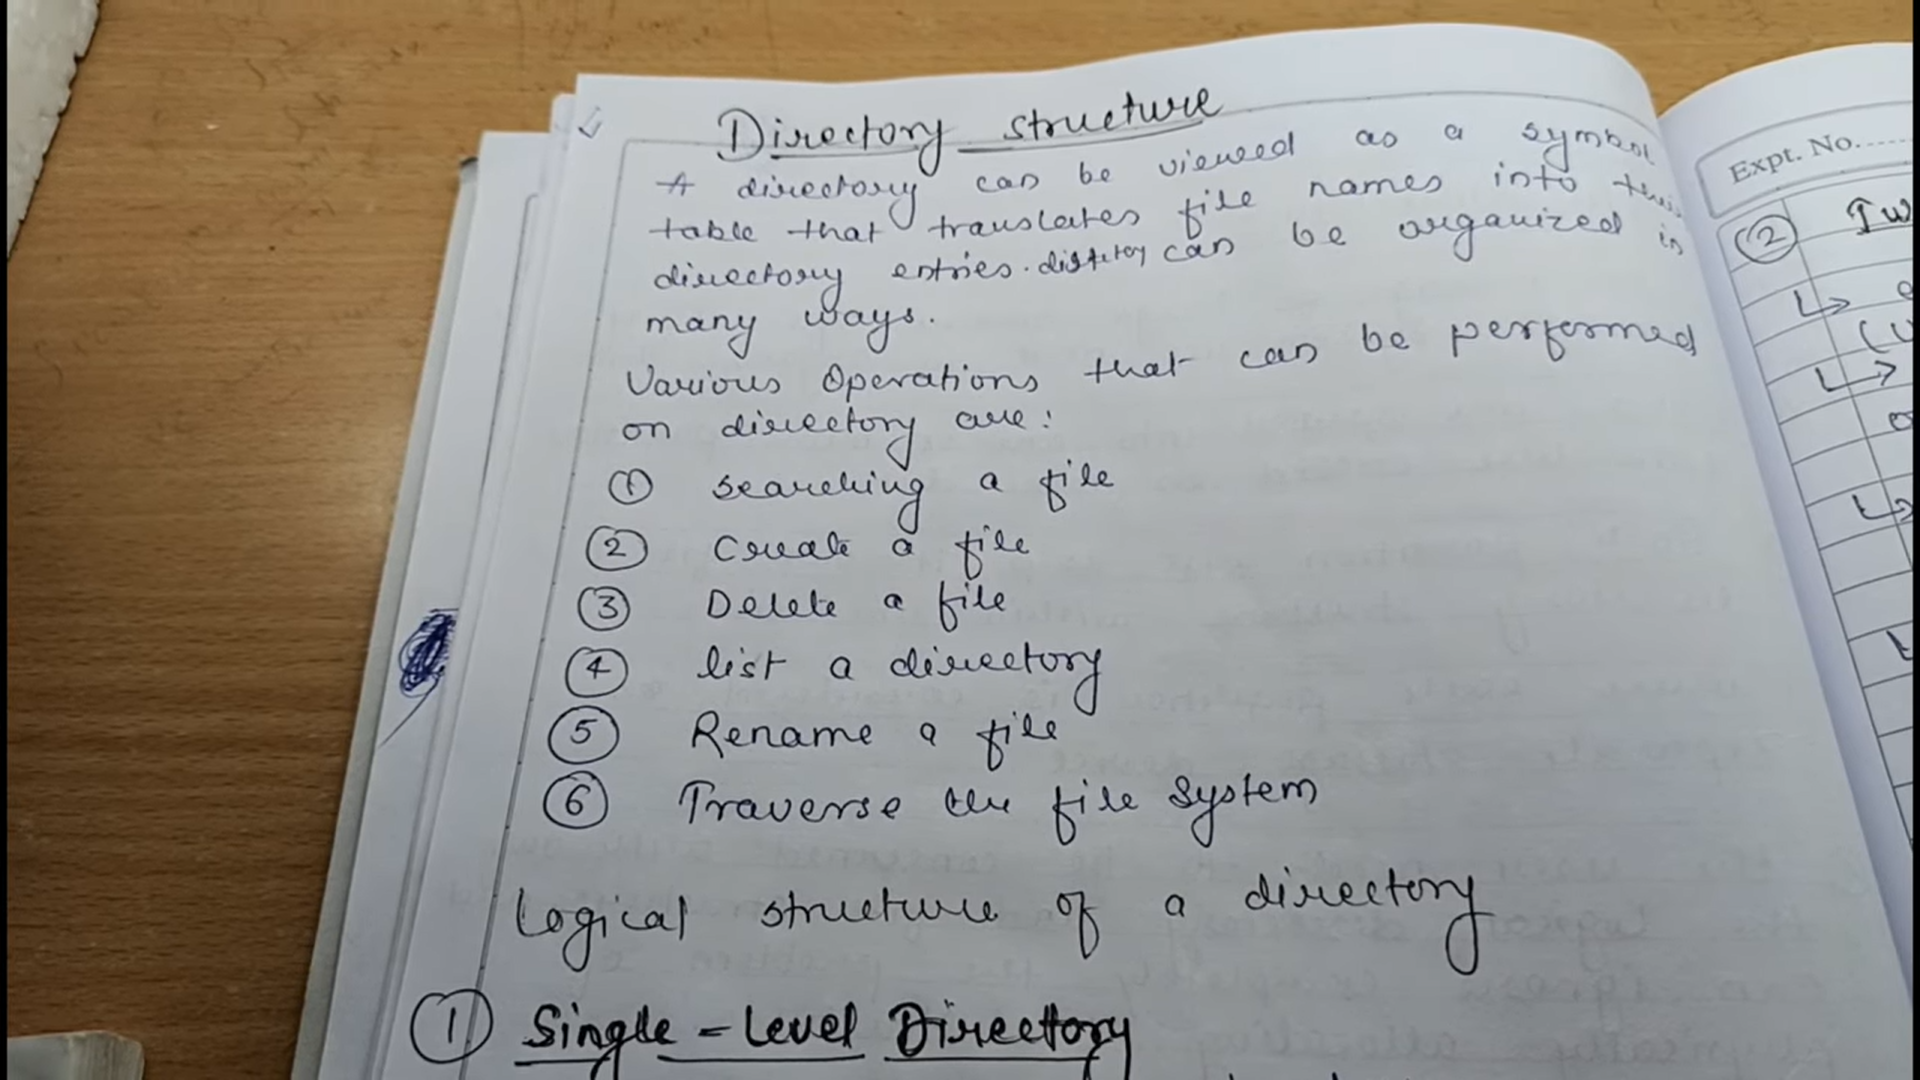 Directory structure
A directory can be viewed as a symbol
table that translates file names into their
directory entries. can be organized in
many ways.
Various Operations that can be performed
on directory are:
① searching a file
② Create a file
③ Delete a file
④ list a directory
⑤ Rename a file
⑥ Traverse the file system
Logical structure of a directory
① Single-Level Directory
Expt. No.
② Tw